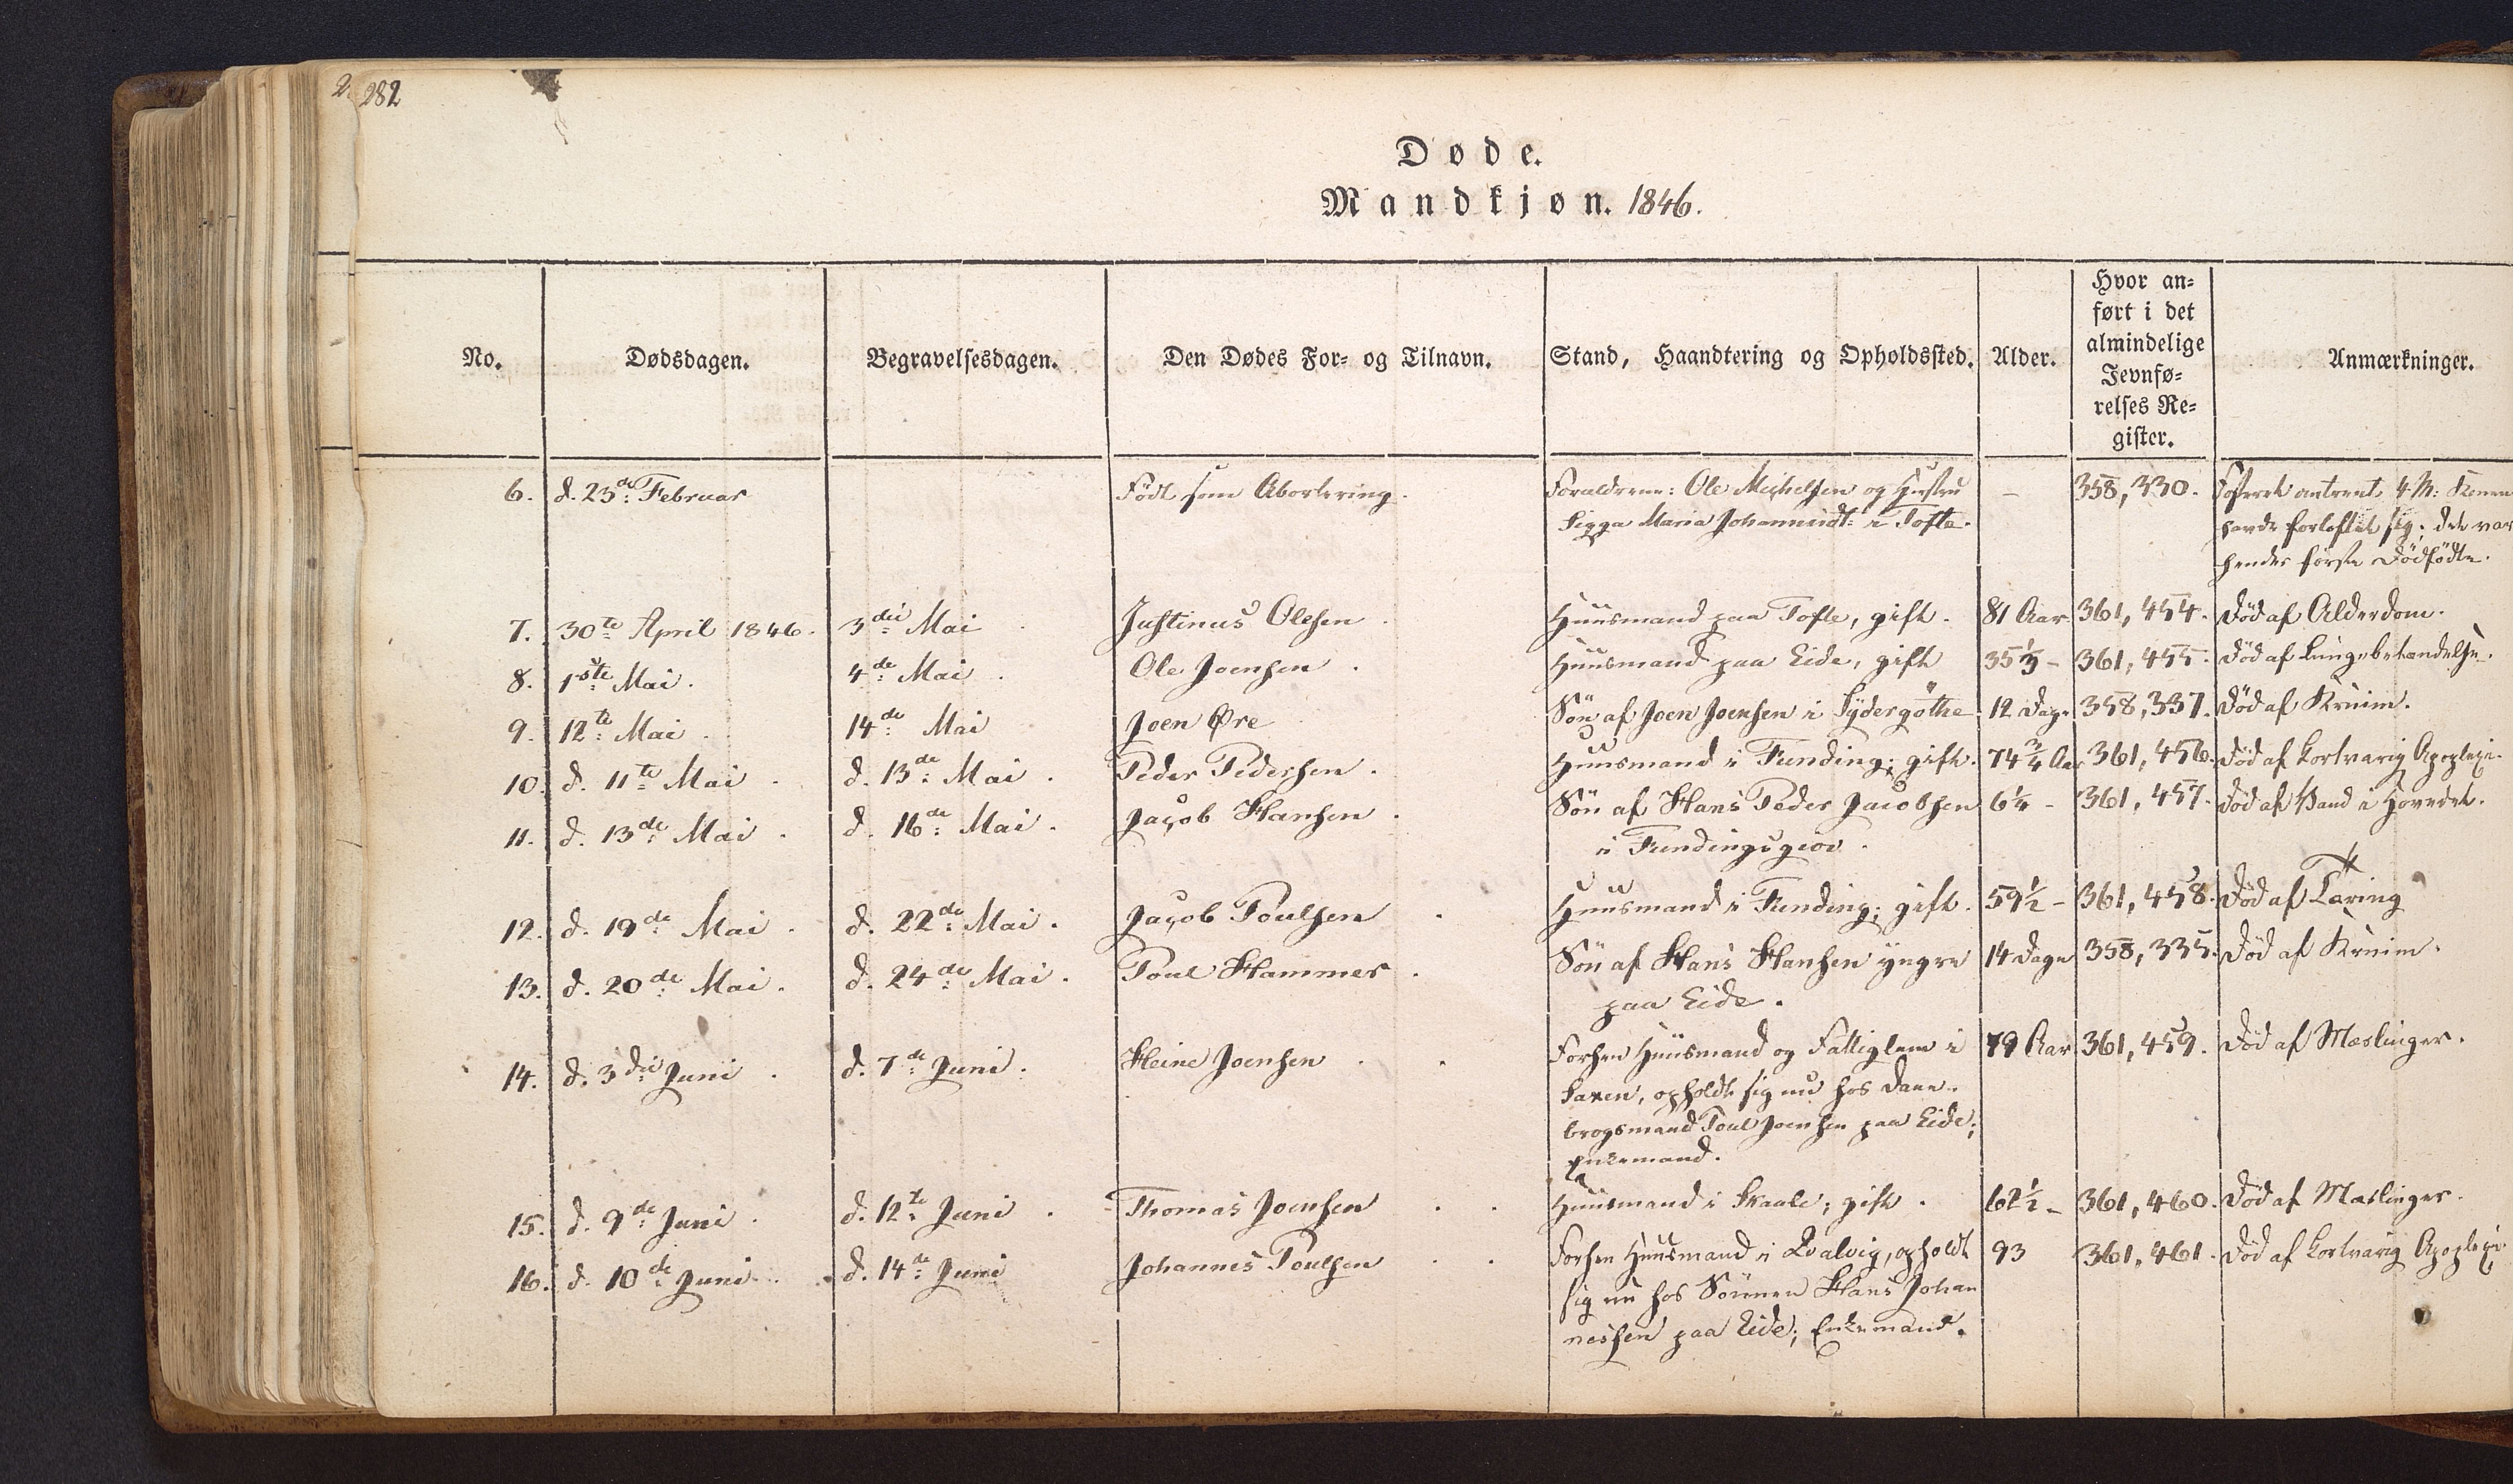 282
Døde.
Mandkjøn. 1846.
No. Dødsdagen. Begravelsesdagen. Den Dødes For- og Tilnavn. Stand, Haandtering og Opholdssted. Alder. Hvor an-
ført i det
almindelige
Jevnfø-
relses Re-
gister. Anmærkninger.
6. d. 23de Februar Födt som Abortering. Forældrene: Ole Michelsen og Hustru — 358, 330. Fosteret omtrent 4 M: Konen
Sigga Maria Johannisdt: i Tofte. havde forløftet sig; det var
hendes første Dödfödte.
7. 30te April 1846. 3die Mai Justinus Olesen. Huusmand paa Tofte, gift. 81 Aar 361, 454. Död af Alderdom.
8. 1ste Mai. 4de Mai. Ole Joensen. Huusmand paa Eide, gift 35⅓ - 361, 455. Död af Lungebetændelse.
9. 12te Mai. 14de Mai Joen Øre Sön af Joen Joensen i Sydergöthe 12 Dage 358, 337. Död af Kruim.
10. d. 11te Mai. d. 13de Mai. Peder Pedersen. Huusmand i Funding; gift. 74¾ Aar 361, 456. Död af kortvarig Apoplexi.
11. d. 13de Mai. d. 16de Mai. Jacob Hansen. Sön af Hans Peder Jacobsen 6¼ - 361, 457. Död af Vand i Hovedet.
i Fundingsgiov.
12. d. 19de Mai. d. 22de Mai. Jacob Poulsen. Huusmand i Funding; gift. 59½ - 361, 458. Död af Tæring
13. d. 20de Mai. d. 24de Mai. Poul Hammer. Sön af Hans Hansen yngre 14 Dage 358, 335. Död af Kruim.
paa Eide.
14. d. 3die Juni. d. 7de Juni. Heine Joensen. Forhen Huusmand og Fattiglem i 79 Aar 361, 459. Död af Mæslinger.
Saxen, opholdt sig nu hos Danne-
brogsmand Poul Joensen paa Eide;
Enkemand.
15. d. 9de Juni. d. 12te Juni. Thomas Joensen. Huusmand i Skaale; gift. 62½ - 361, 460. Död af Mæslinger.
16. d. 10de Juni. d. 14de Juni Johannes Poulsen. Forhen Huusmand i Qvalvig, opholdt 93 361, 461. Död af kortvarig Apoplexi
sig nu hos Sönnen Hans Johan
nessen paa Eide; Enkemand.